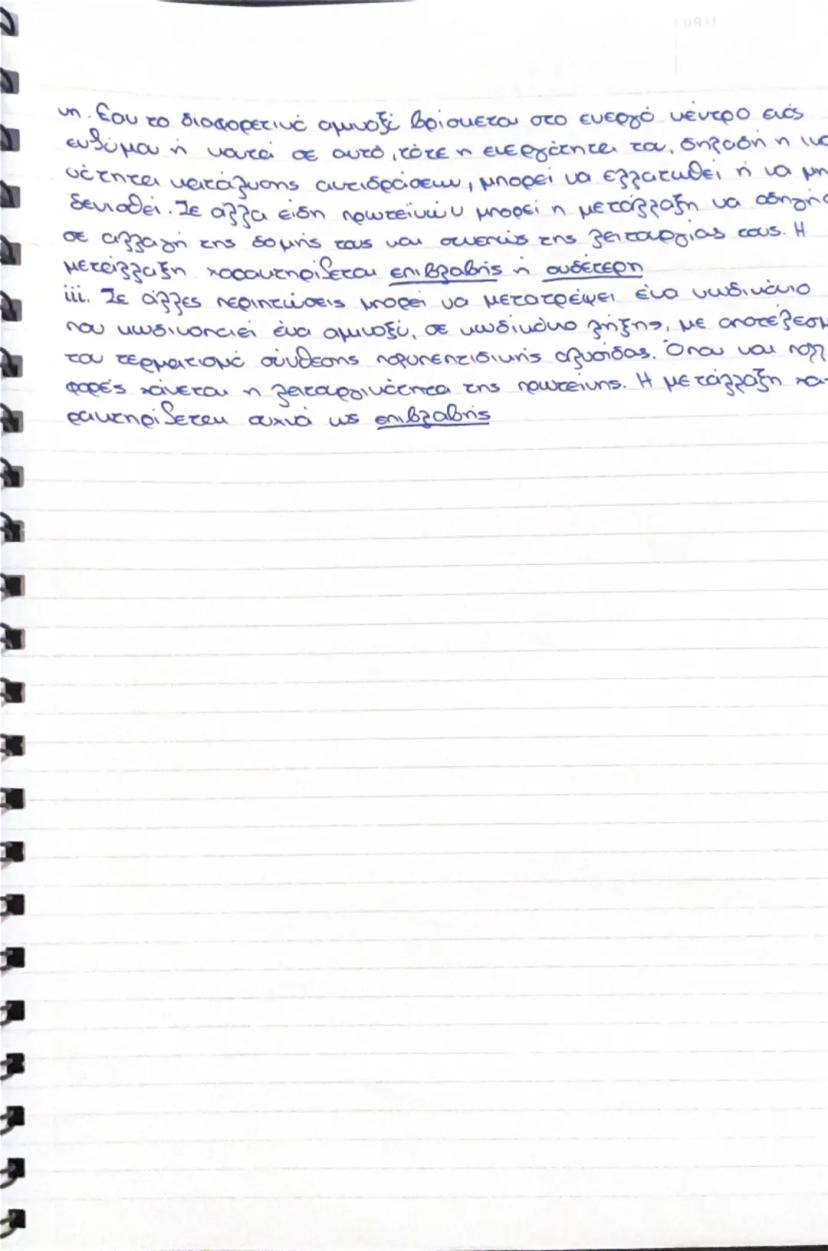 νη. Εαν το διαφορετικό αμινοξύ βρίσκεται στο ενεργό κέντρο ενός
ενζύμου ή κοντά σε αυτό, τότε η ενεργότητα του, δηλαδή η ικα
νότητα κατάλυσης αντιδράσεων, μπορεί να ελλατωθεί ή να μη
δενισθεί. Σε άλλα είδη πρωτεϊνών μπορεί η μετάλλαξη να οδηγήσ
σε αλλαγή της δομής τους και συνεπώς της λειτουργίας τους. Η
μετάλλαξη χαρακτηρίζεται επιβλαβής ή ουδέτερη
iii. Σε άλλες περιπτώσεις μπορεί να μετατρέψει ένα κωδικόνιο
που κωδικοποιεί ένα αμινοξύ, σε κωδικόνιο λήξης, με αποτέλεσμ
τον τερματισμό σύνθεσης πολυπεπτιδικής αλυσίδας. Όπου και πολλ
φορές χάνεται η λειτουργικότητα της πρωτεΐνης. Η μετάλλαξη χα-
ρακτηρίζεται συχνά ως επιβλαβής